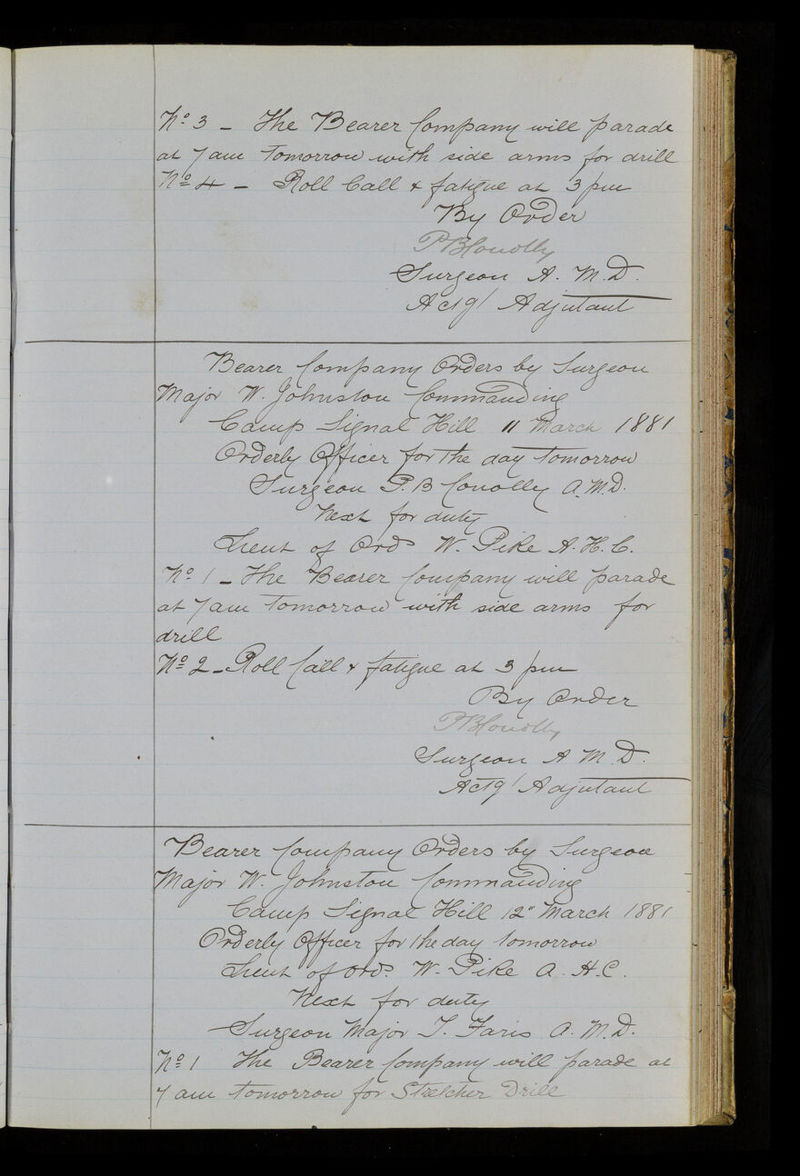 No 3 - The Bearer Company will parade
at 7 am Tomorrow with side arms for drill
No 4 - Roll Call & fatigue at 3 pm
By Order
P B Conolly
Surgeon A. M. D.
Actg/ Adjutant
Bearer Company Orders by Surgeon
Major W. Johnston Commanding
Camp Signal Hill 11 March 1881
Orderly Officer for the day tomorrow
Surgeon P. B Conolly A. M. D.
Next for duty
Lieut of Ords W. Pike A. H. C.
No 1 - The Bearer Company will parade
at 7 am Tomorrow with side arms for
drill
No 2 - Roll Call & fatigue at 3 pm
By Order
P B Conolly
Surgeon A M D.
Actg/ Adjutant
Bearer Company Orders by Surgeon
Major W. Johnston Commanding
Camp Signal Hill 12" March 1881
Orderly Officer for the day tomorrow
Lieut of Ords. W. Pike A. H. C.
Next for duty
Surgeon Major T. Faris A. M. D.
No 1 The Bearer Company will parade at
7 am tomorrow for Stretcher Drill